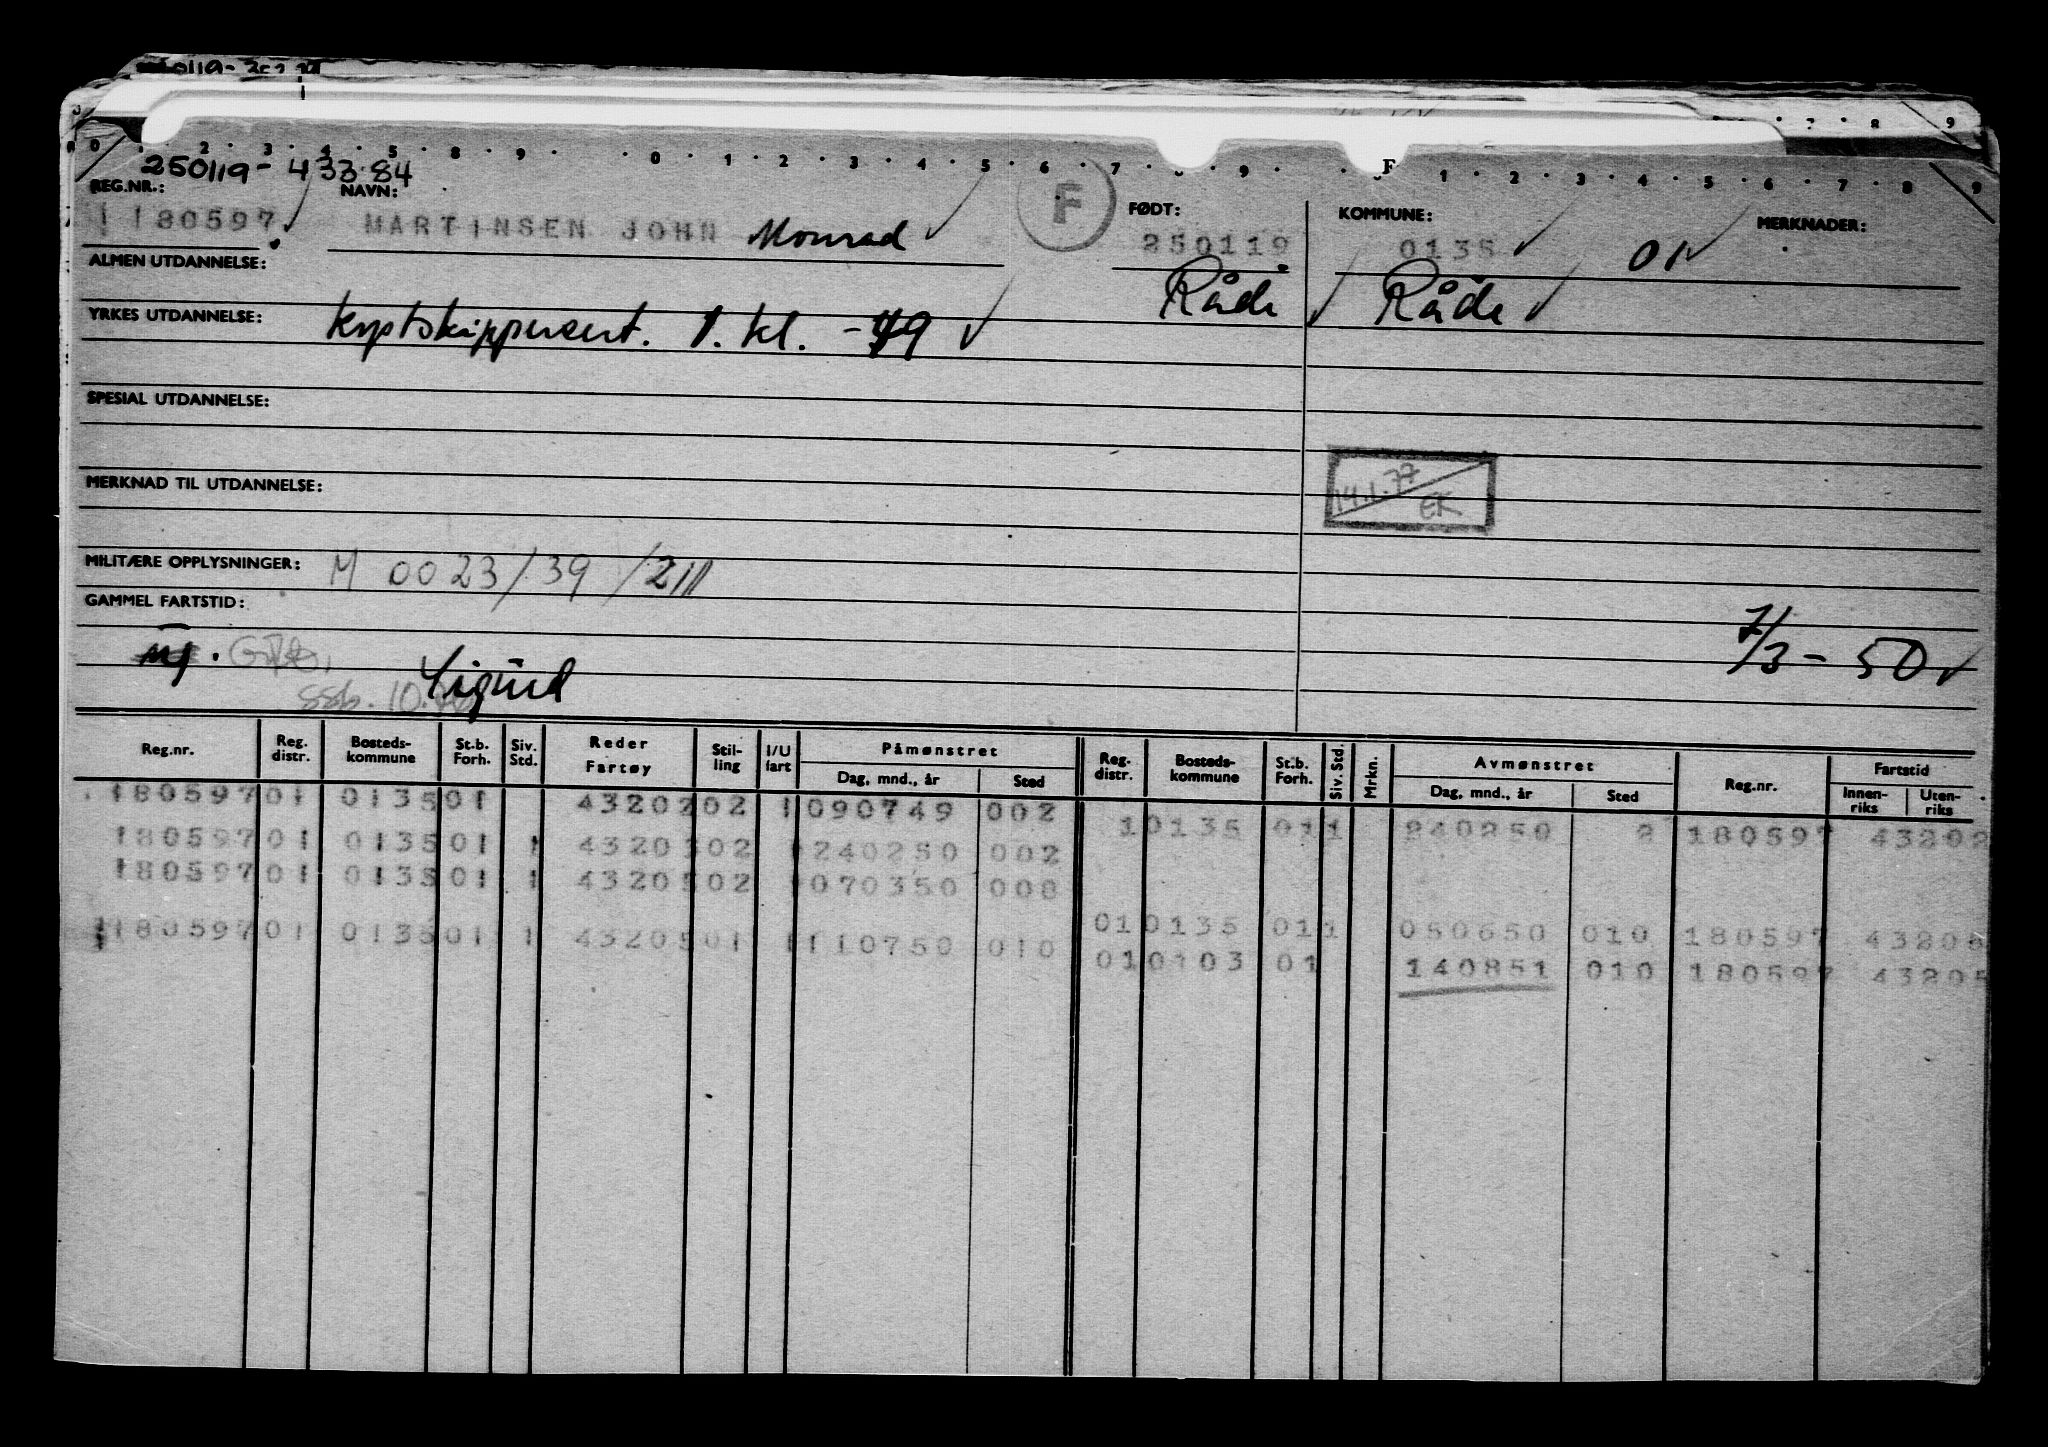 250119-433.84
REG.NR.: NAVN: FØDT: KOMMUNE: MERKNADER:
180597 MARTINSEN JOHN Monrad F 250119 0135 01
Råde Råde
ALMEN UTDANNELSE:
YRKES UTDANNELSE: kystskippersert. 1. kl. -49
SPESIAL UTDANNELSE:
14.1.77 EK
MERKNAD TIL UTDANNELSE:
MILITÆRE OPPLYSNINGER: M 0023/39/2111
GAMMEL FARTSTID:
7/3-50
ssb. 10. Sigurd
Reg.nr. Reg. distr. Bosteds-kommune St.b. Forh. Siv. Std. Reder Fartøy Stil-ling I/U fart Påmønstret Dag, mnd., år Sted Reg. distr. Bosteds-kommune St.b. Forh. Siv. Std. Mrkn. Avmønstret Dag, mnd., år Sted Reg.nr. Fartstid Innen-riks Uten-riks
180597 01 0135 01 43202 02 1 090749 002
1 0135 01 1 240250 2 180597 43202
180597 01 0135 01 1 4320 02 1 240250 002
180597 01 0135 01 1 43205 02 1 070350 008
01 0135 01 1 050650 010 180597 43205
180597 01 0135 01 1 43205 01 1 110750 010
01 0103 01 140851 010 180597 43205